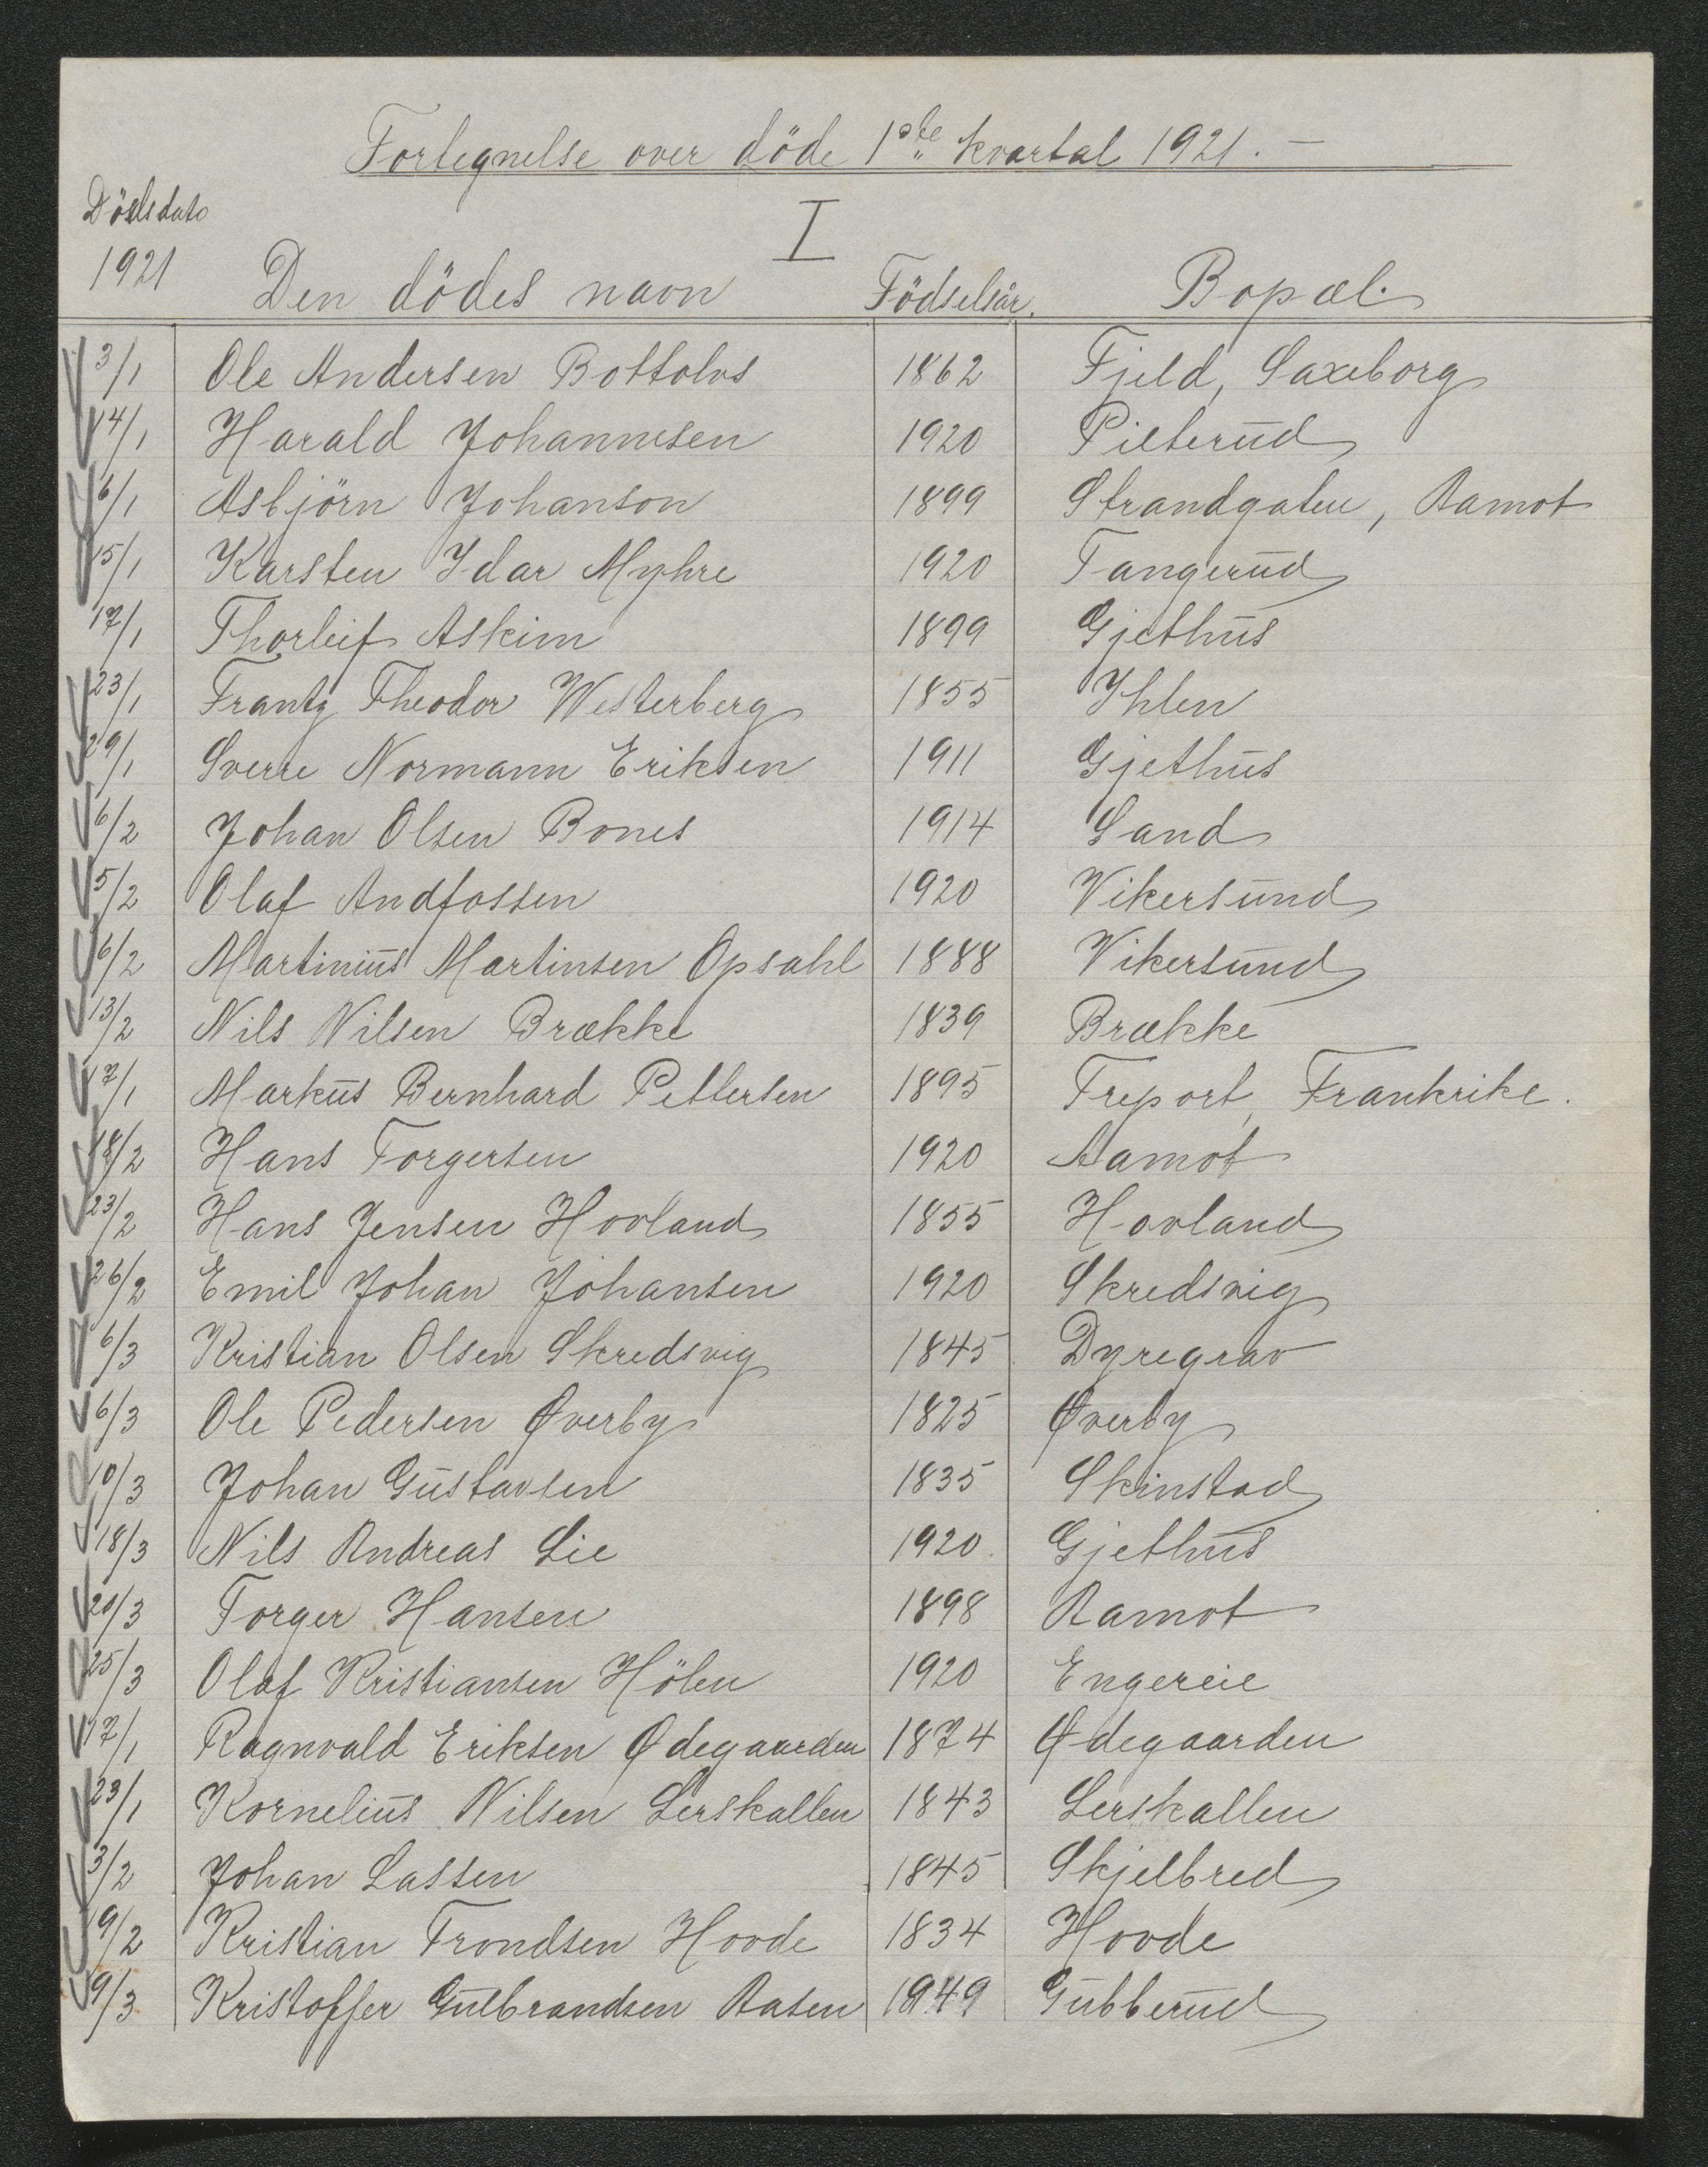 Fortegnelse over döde 1ste kvartal 1921. –
I
Dödsdato
1921 Den dödes navn Födselsår. Bopæl.
3/1 Ole Andersen Bottolvs 1862 Fjeld, Saxeborg
14/1 Harald Johannesen 1920 Pilterud
6/1 Asbjörn Johanson 1899 Strandgaten, Aamot
15/1 Karsten Idar Myhre 1920 Tangerud
17/1 Thorleif Askim 1899 Gjethus
23/1 Frantz Theodor Westerberg 1855 Ihlen
29/1 Sverre Normann Eriksen 1911 Gjethus
6/2 Johan Olsen Bones 1914 Sand
5/2 Olaf Andfossen 1920 Vikersund
6/2 Martinius Martinsen Opsahl 1888 Vikersund
13/2 Nils Nilsen Brække 1839 Brække
17/1 Markus Bernhard Pettersen 1895 Treport, Frankrike.
18/2 Hans Torgersen 1920 Aamot
23/2 Hans Jensen Hovland 1855 Hovland
26/2 Emil Johan Johansen 1920 Skredsvig
6/3 Kristian Olsen Skredsvig 1845 Dyregrav
6/3 Ole Pedersen Øverby 1825 Øverby
10/3 Johan Gustavsen 1835 Skinstad
18/3 Nils Andreas Lie 1920 Gjethus
20/3 Torger Hansen 1898 Aamot
25/3 Olaf Kristiansen Hölen 1920 Engereie
17/1 Ragnvald Eriksen Ødegaarden 1874 Ødegaarden
23/1 Kornelius Nilsen Lerskallen 1843 Lerskallen
3/2 Johan Lassen 1845 Skjelbred
19/2 Kristian Trondsen Hovde 1834 Hovde
9/3 Kristoffer Gulbrandsen Aasen 1849 Gubberud